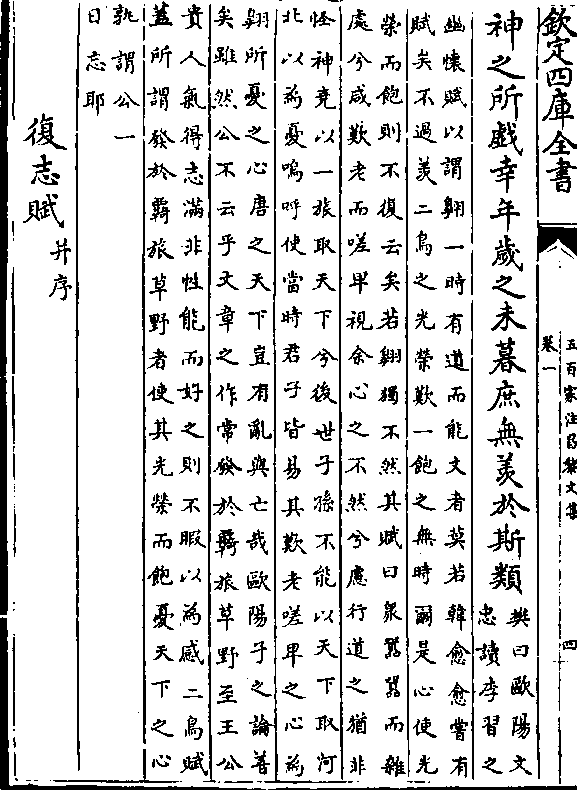 欽定四庫全書
五百家注昌黎文集
卷一
四
神之所戲幸年歲之未暮庶無羨於斯類
樊曰歐陽文
忠讀李習之
幽懷賦以謂翱一時有道而能文者莫若韓愈愈嘗有
賦矣不過羨二鳥之光榮歎一飽之無時爾是心使光
榮而飽則不復云矣若翱獨不然其賦曰衆囂囂而雜
處兮咸歎老而嗟卑視余心之不然兮慮行道之猶非
怪神堯以一旅取天下兮後世子孫不能以天下取河
北以為憂嗚呼使當時君子皆易其歎老嗟卑之心為
翱所憂之心唐之天下豈有亂與亡哉歐陽子之論善
矣雖然公不云乎文章之作常發於羇旅草野至王公
貴人氣得志滿非性能而好之則不暇以為感二鳥賦
蓋所謂發於羇旅草野者使其光榮而飽憂天下之心
孰謂公一
日忘耶
復志賦并序